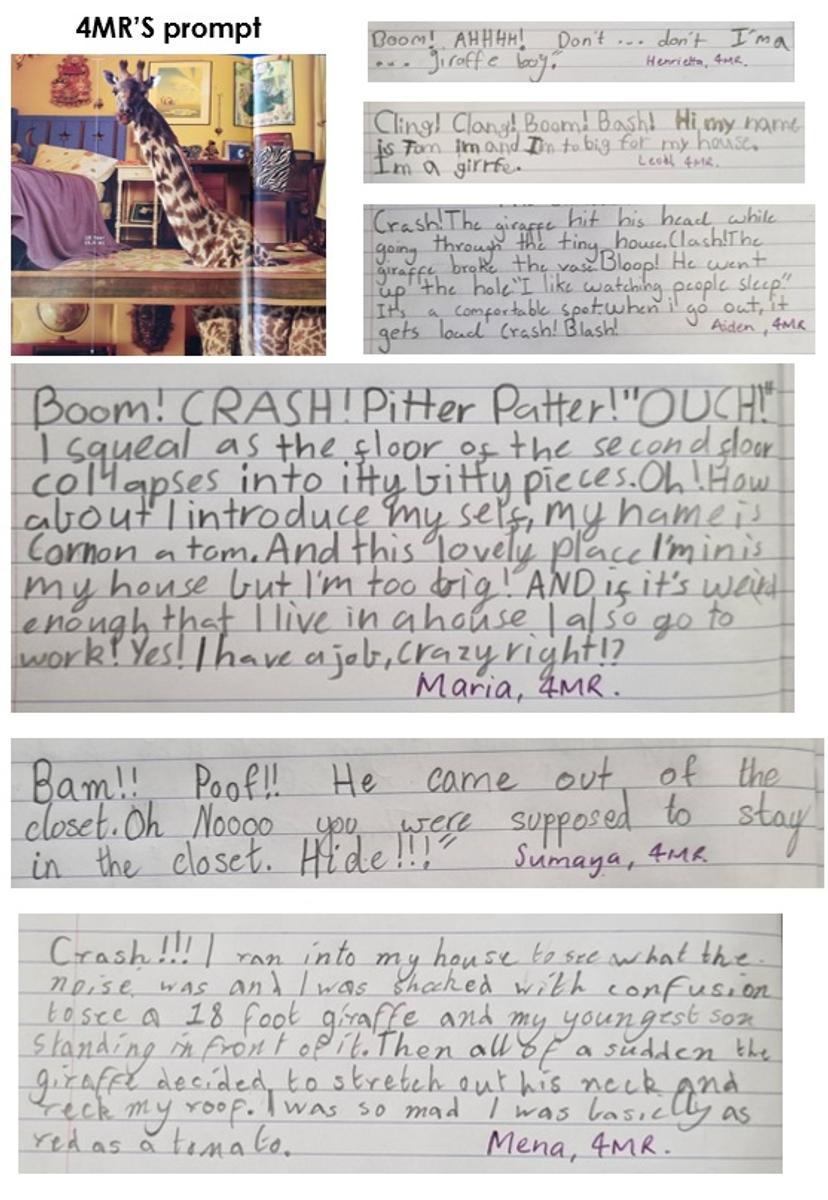 4MR'S prompt
Boom! AHHHH! Don't ... don't I'm a
... giraffe boy."
Henrietta, 4MR.
Cling! Clang! Boom! Bash! Hi my name
is Tom im and Im to big for my house.
I'm a girrfe.
4MR.
Crash! The giraffe hit his head while
going through the tiny house. Clash! The
giraffe broke the vase. Bloop! He went
up "the hole" I like watching people sleep."
It's a comfortable spot. when i go out, it
gets loud" Crash! Blash!
Aiden, 4MR
Boom! CRASH! Pitter Patter! "OUCH!"
I squeal as the floor of the second floor
collapses into itty bitty pieces. Oh! How
about I introduce my self, my name is
Cornon a tom. And this lovely place I'm in is
my house but I'm too big! AND if it's weird
enough that I live in a house I also go to
work! Yes! I have a job, crazy right!?
Maria, 4MR.
Bam!! Poof!! He came out of the
closet. Oh Noooo you were supposed to stay
in the closet. Hide!!!"
Sumaya, 4MR.
Crash!!! I ran into my house to see what the
noise was and I was shocked with confusion
to see a 18 foot giraffe and my youngest son
standing in front of it. Then all of a sudden the
giraffe decided to stretch out his neck and
reck my roof. I was so mad I was basiclly as
red as a tomato.
Mena, 4MR.